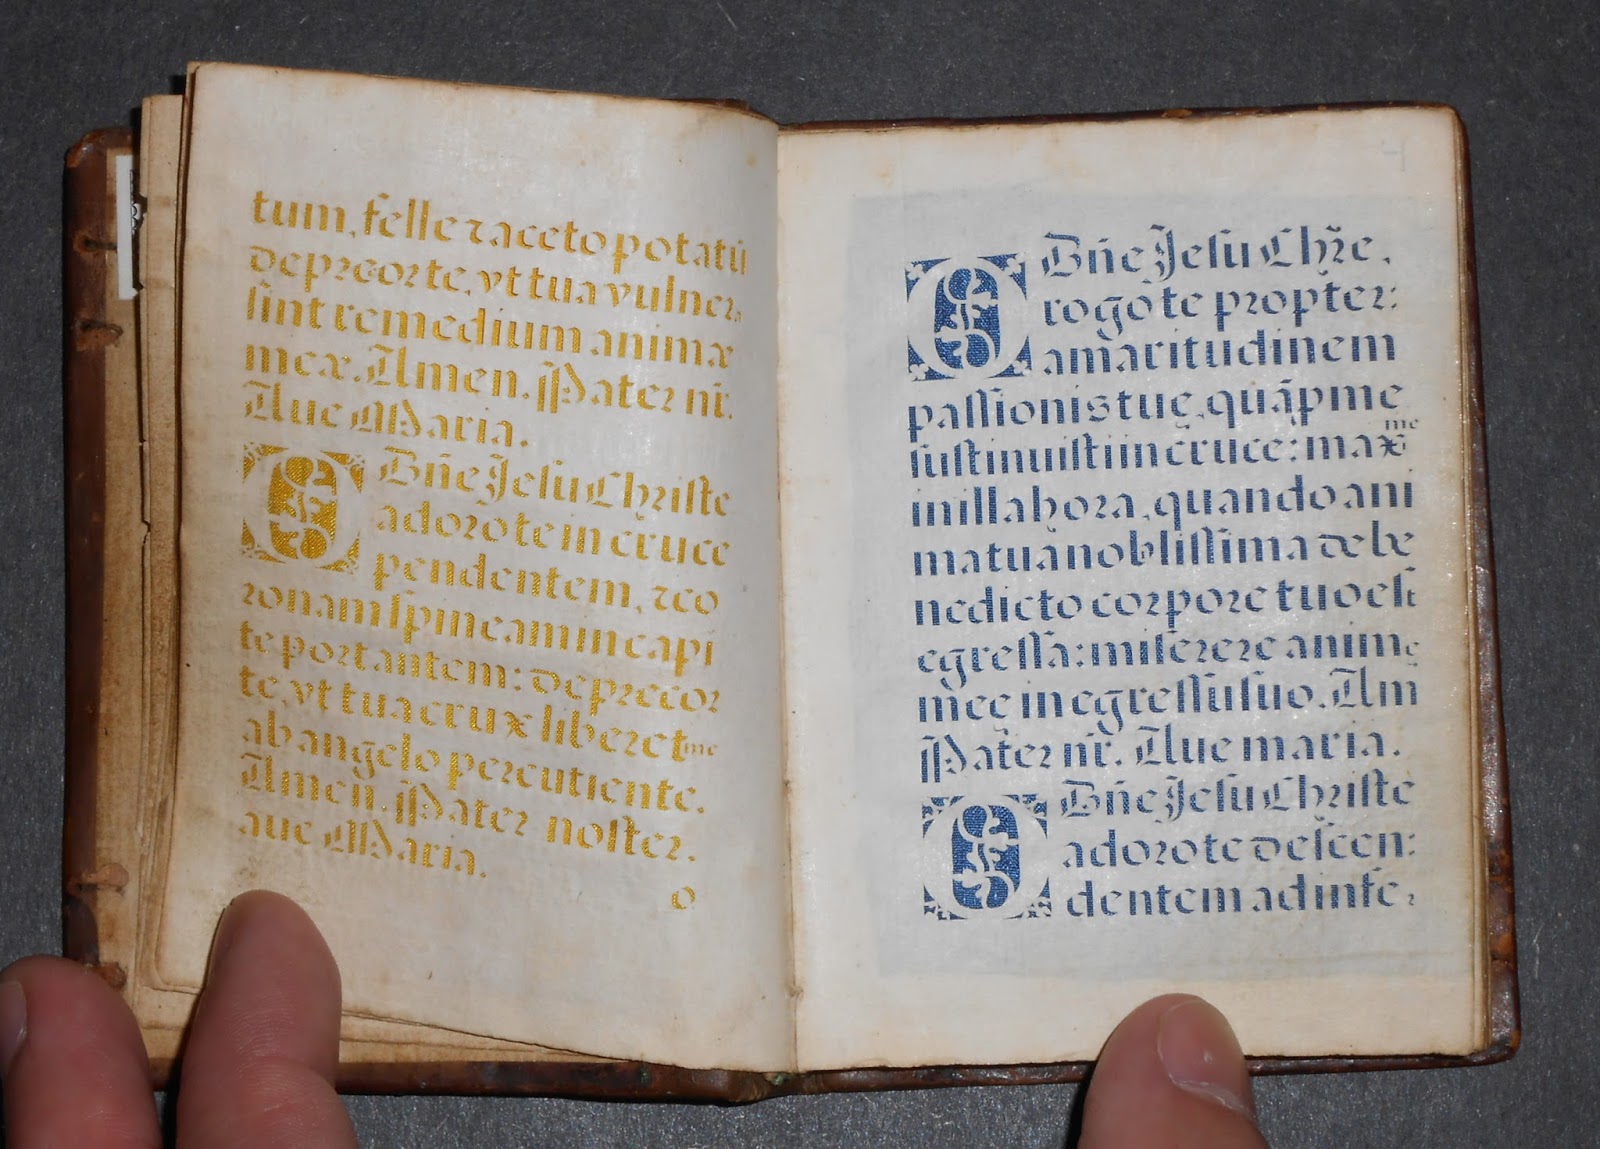 tum, felle ⁊ aceto potatū
deprecor te, vt tua vulner,
ſint remedium animæ
meæ. Amen. Pater nr̄.
Aue Maria.
O Dn̄e Jeſu Chriſte
adoro te in cruce
pendentem, ⁊ co
ronam ſpineam in capi
te portantem: deprecor
te, vt tua crux liberet me
ab angelo percutiente.
Amen. Pater noſter.
aue Maria.
o
O Dn̄e Jeſu Chr̄e,
rogo te propter:
amaritudinem
paſſionis tuę, quā p me
ſuſtinuiſti in cruce: maxime
in illa hora, quando ani
ma tua nobliſſima de be
nedicto corpore tuo eſt
egreſſa: miſerere animę
meę in egreſſu ſuo. Am
Pater nr̄. Aue maria.
O Dn̄e Jeſu Chriſte
adoro te deſcen:
dentem ad infe,